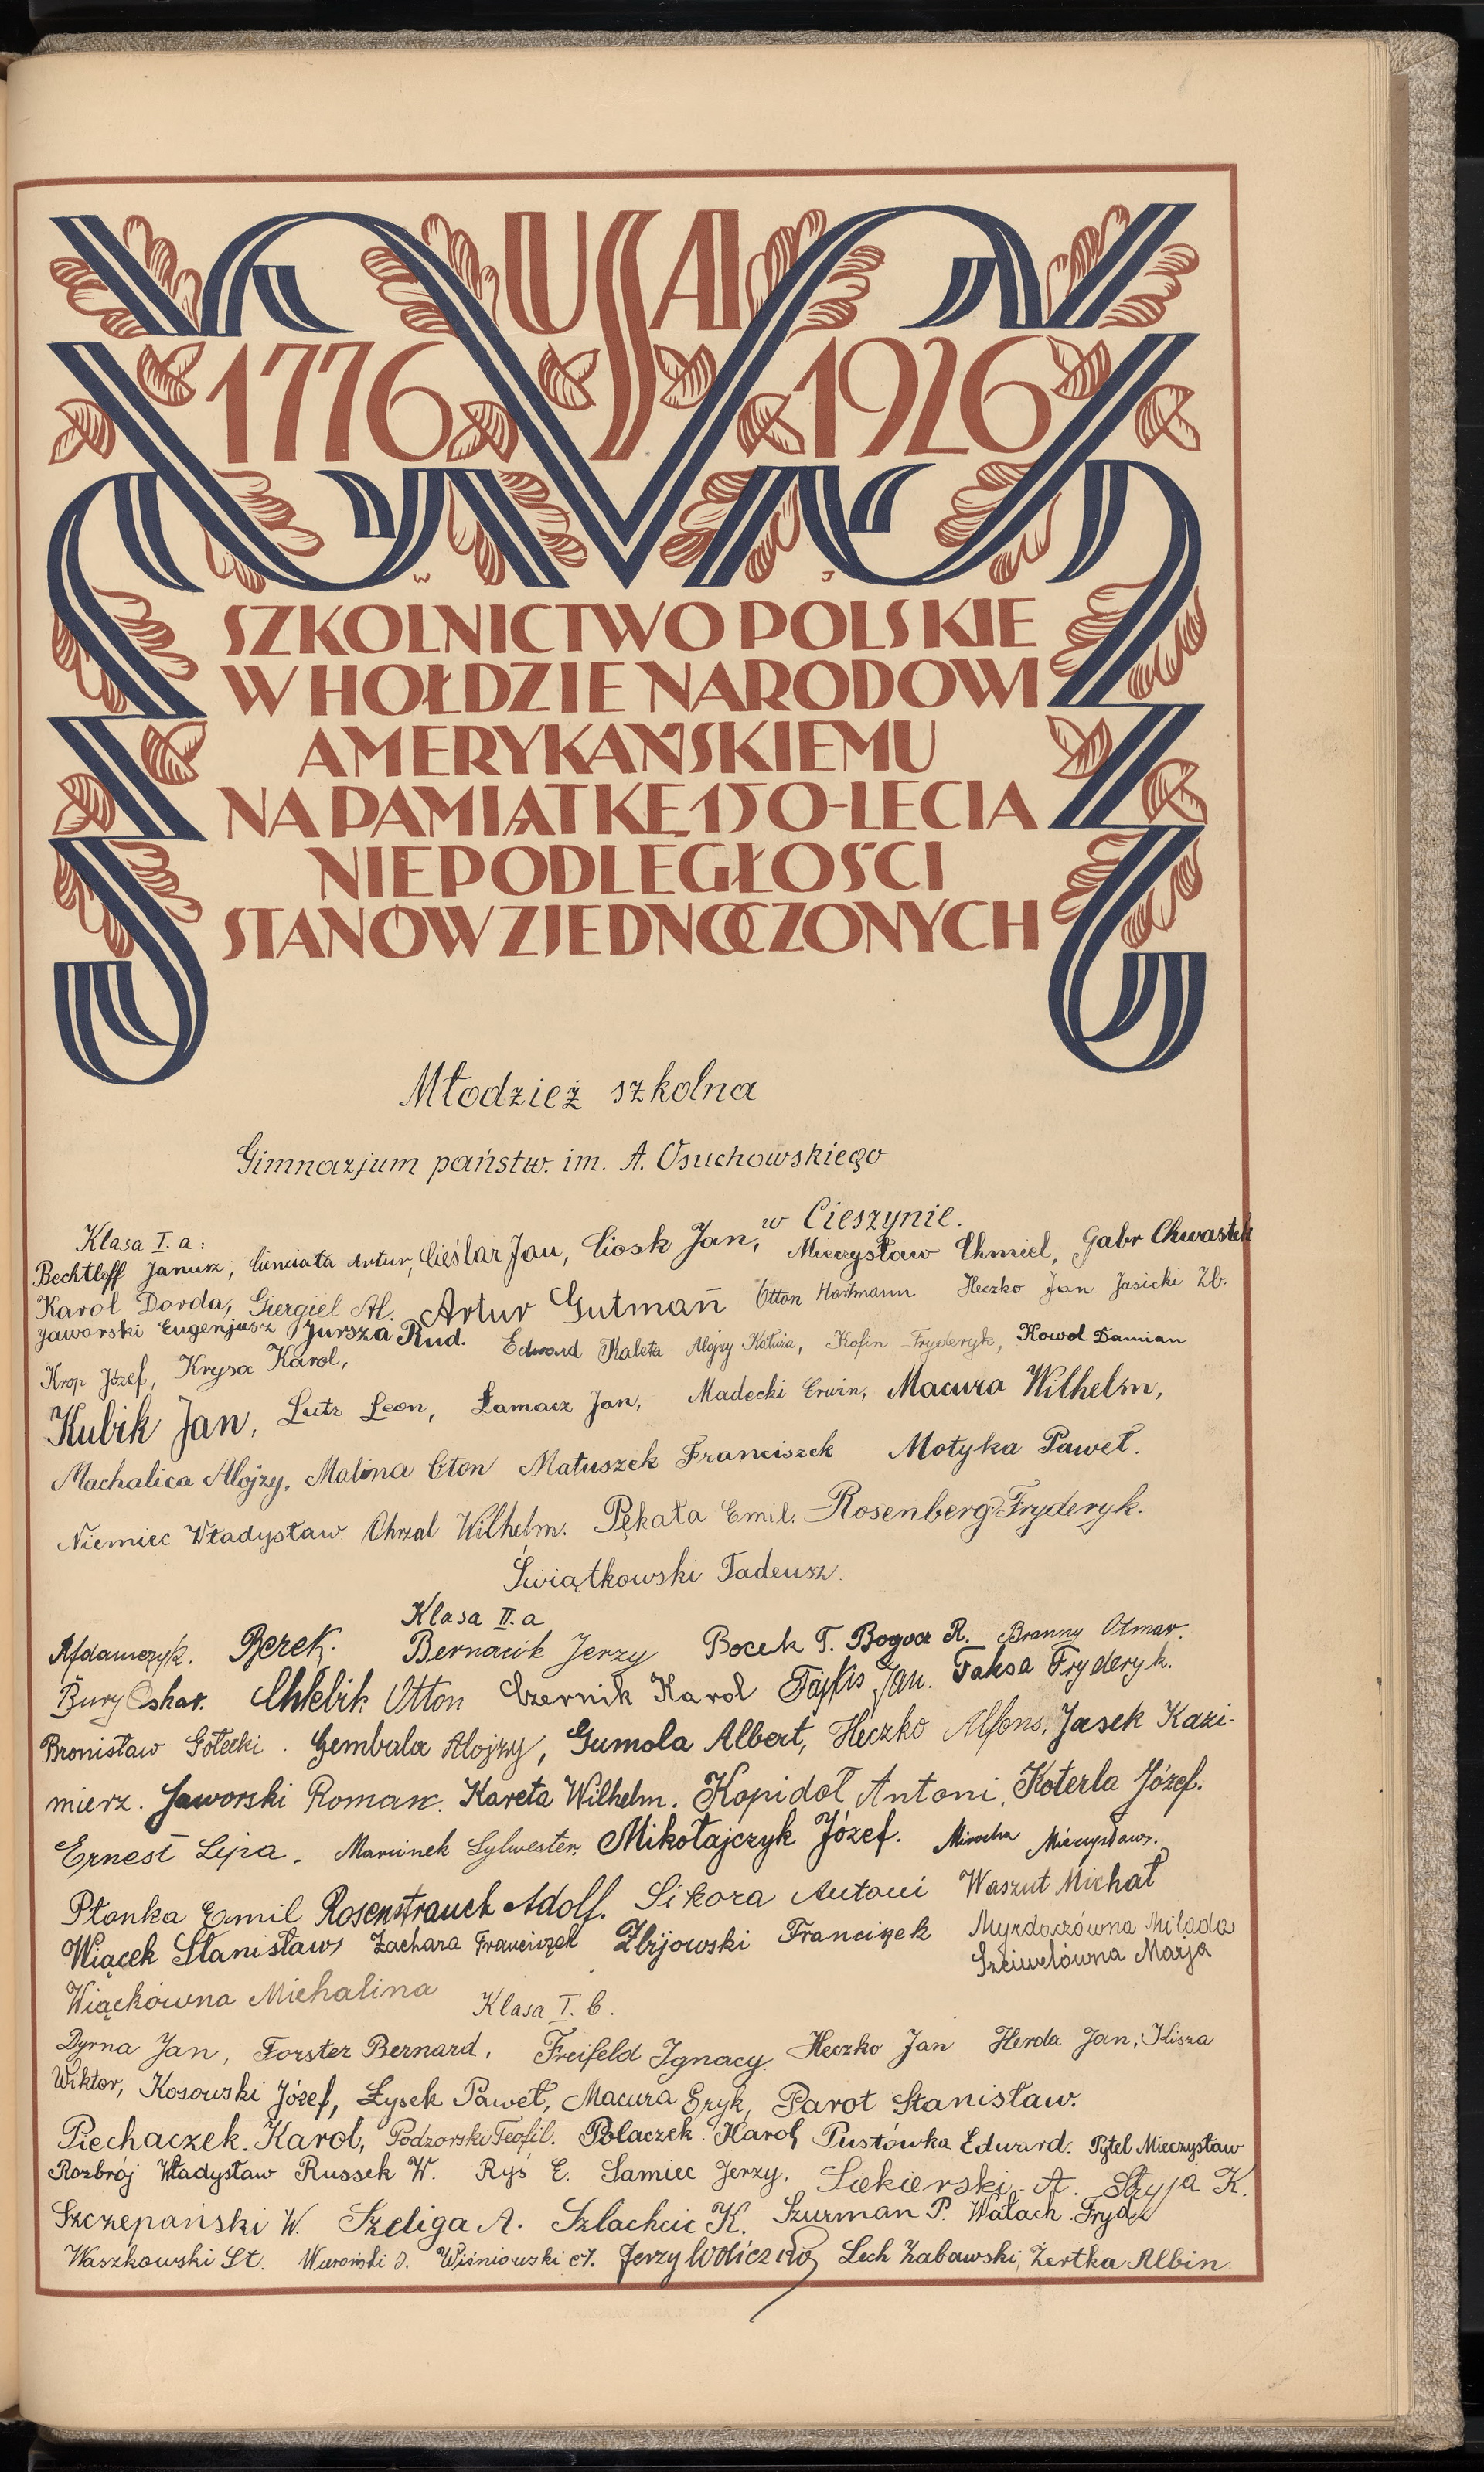 USA
1776 1926
W J
SZKOLNICTWO POLSKIE
W HOŁDZIE NARODOWI
AMERYKAŃSKIEMU
NA PAMIĄTKĘ 150-LECIA
NIEPODLEGŁOŚCI
STANÓW ZJEDNOCZONYCH
Młodzież szkolna
Gimnazjum państw. im. A. Osuchowskiego
w Cieszynie.
Klasa I. a:
Bechtloff Janusz, Cienciała Artur, Cieślar Jan, Ciosk Jan, Mieczysław Chmiel, Gabr Chwastek
Karol Dorda, Giergiel Al. Artur Gutmañ Otton Hartmann Heczko Jan Jasicki Zb.
Jaworski Eugenjusz Jursza Rud. Edward Kaleta Alojzy Kałuża, Kofin Fryderyk, Kowol Damian
Krop Józef, Krysa Karol,
Kubik Jan, Lutz Leon, Łamacz Jan, Madecki Erwin, Macura Wilhelm,
Machalica Alojzy, Malina Oton Matuszek Franciszek Motyka Paweł.
Niemiec Władysław Chrzal Wilhelm. Pękała Emil. Rosenberg Fryderyk.
Świątkowski Tadeusz.
Klasa II. a
RAdamczyk. Berek. Bernacik Jerzy Bocek T. Bogocz R. Branny Otmar.
Bury Oskar. Chlebik Otton Czernik Karol Fajkis Jan. Faksa Fryderyk.
Bronisław Gołecki. Gembala Alojzy, Gumola Albert, Heczko Alfons, Jasek Kazi-
mierz. Jaworski Roman. Kareta Wilhelm. Kopidoł Antoni, Koterla Józef.
Ernest Lipa. Marcinek Sylwester. Mikołajczyk Józef. Mirocha Mieczysław.
Płonka Emil Rosenstrauch Adolf. Sikora Antoni Waszut Michał
Wiącek Stanisław Zachara Franciszek Zbijowski Franciszek Myrdaczówna Milada
Szeiwelówna Marja
Wiąckówna Michalina
Klasa I. b.
Dyrna Jan, Forster Bernard, Freifeld Ignacy. Heczko Jan Herda Jan, Kisza
Wiktor, Kosowski Józef, Łysek Paweł, Macura Eryk, Parot Stanisław.
Piechaczek. Karol, Podzorski Teofil. Polaczek Karol, Pustówka Edward. Pytel Mieczysław
Rozbrój Władysław Russek W. Ryś E. Samiec Jerzy, Siekierski A. Stryja K.
Szczepański W. Szeliga A. Szlachcic K. Szurman P. Wałach Fryd.
Waszkowski St. Wiśniowski Jerzy Lech Zabawski, Żertka Albin